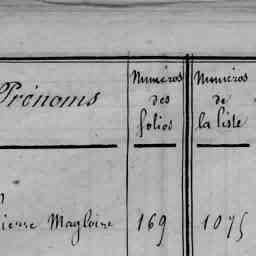 Prénoms
Numéros
des
folios
Numéros
de
la liste
ierre Magloire 169 1075